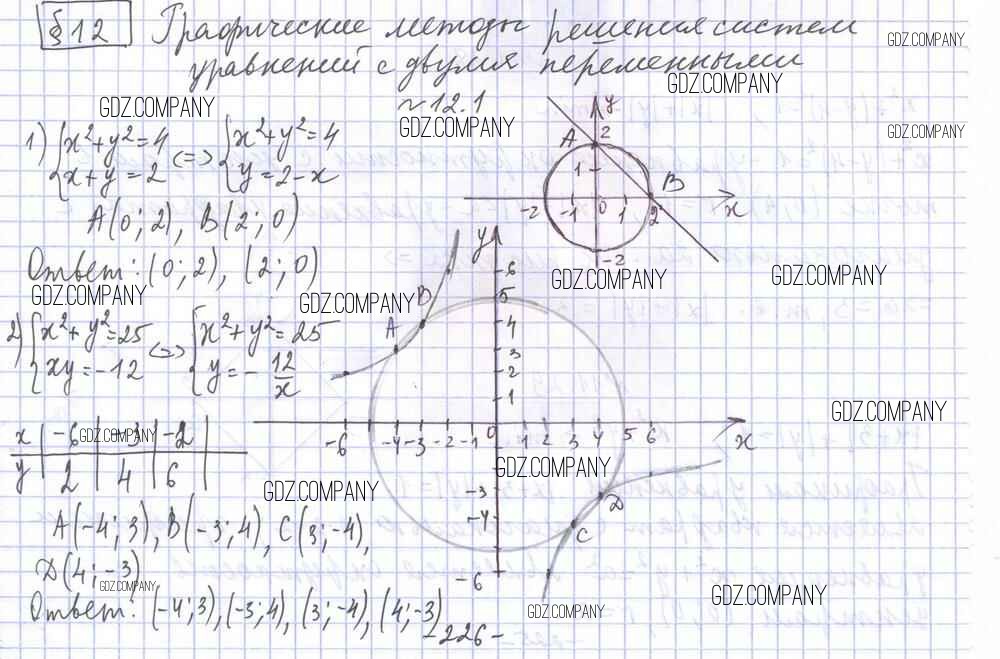 §12 Графические методы решения систем
уравнений с двумя переменными
GDZ.COMPANY
GDZ.COMPANY
GDZ.COMPANY
№12.1
GDZ.COMPANY
GDZ.COMPANY
1) {x²+y²=4 <=> {x²+y²=4
{x+y=2 {y=2-x
A(0;2), B(2;0)
Ответ: (0;2), (2;0)
y
A 2
1
B
-2 -1 0 1 2 x
-2
GDZ.COMPANY
GDZ.COMPANY
GDZ.COMPANY
GDZ.COMPANY
2) {x²+y²=25 <=> {x²+y²=25
{xy=-12 {y=-12/x
x | -6 | -3 | -2 |
y | 2 | 4 | 6 |
GDZ.COMPANY
y
6
B 5
A 4
3
2
1
-6 -4 -3 -2 -1 0 1 2 3 4 5 6 x
-3
-4
D
C
-6
GDZ.COMPANY
GDZ.COMPANY
GDZ.COMPANY
A(-4;3), B(-3;4), C(3;-4),
D(4;-3)
GDZ.COMPANY
Ответ: (-4;3), (-3;4), (3;-4), (4;-3)
GDZ.COMPANY
GDZ.COMPANY
-226-